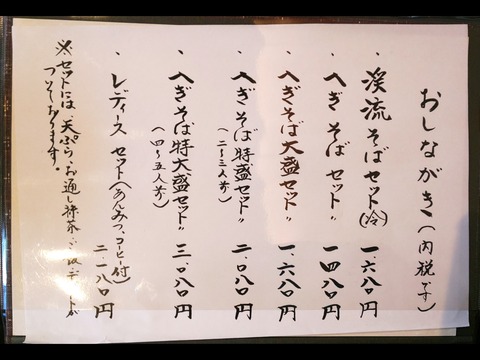 おしながき(内税です)
・渓流そばセット(冷) 一.六八〇円
・へぎそばセット〃 一.四八〇円
・へぎそば大盛セット〃 一.六八〇円
・へぎそば特盛セット〃 二.〇八〇円
(二〜三人前)
・へぎそば特大盛セット〃 三.〇八〇円
(四〜五人前)
・レディースセット(あんみつ、コーヒー付) 二.一八〇円
※セットには天ぷら、お通し、抹茶、
ついております。